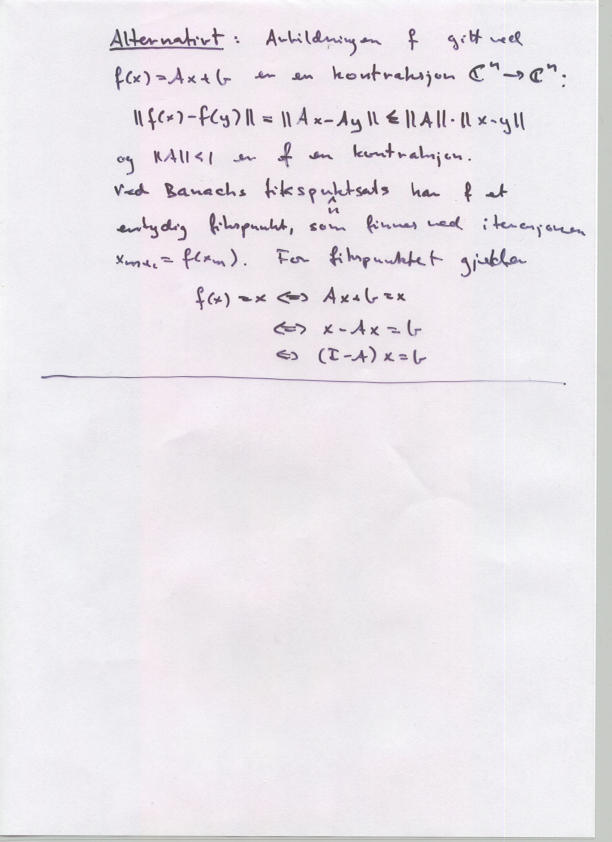 Alternativt: Avbildningen f gitt ved
f(x) = Ax + b er en kontraksjon ℂⁿ → ℂⁿ:
||f(x) - f(y)|| = ||Ax - Ay|| ≤ ||A|| · ||x - y||
og ||A|| < 1 er f en kontraksjon.
Ved Banachs fikspunktsats har f et
entydig fikspunkt, som finnes ved iterasjonen
xₘ₊₁ = f(xₘ). For fikspunktet gjelder
f(x) = x ⇔ Ax + b = x
⇔ x - Ax = b
⇔ (I - A) x = b